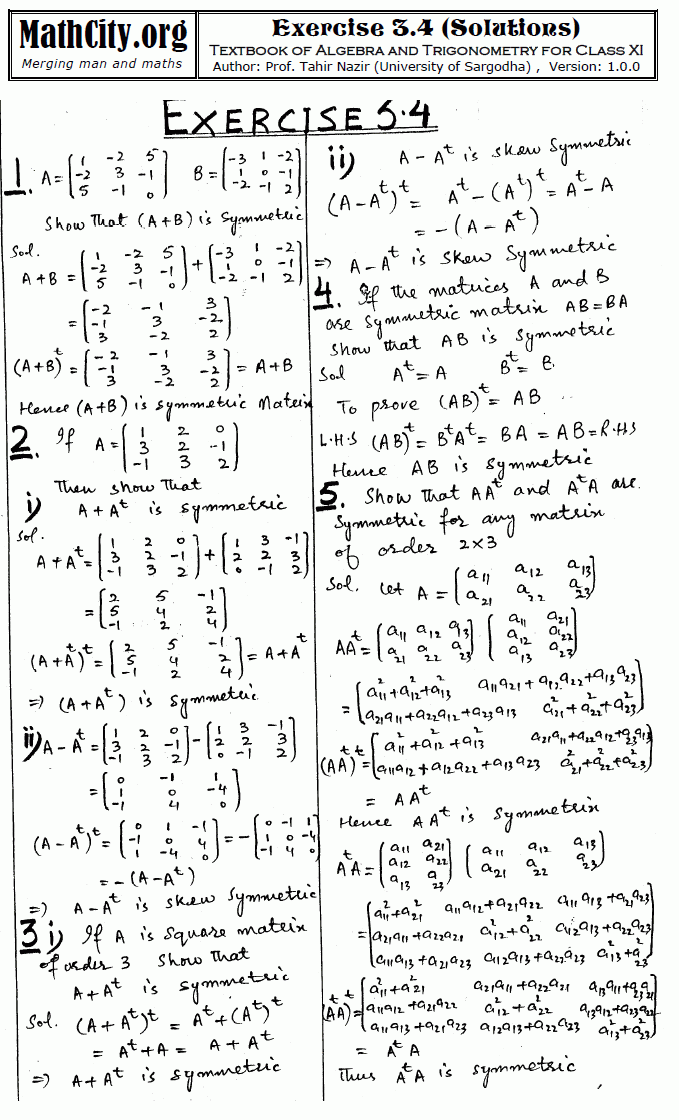 MathCity.org
Merging man and maths
Exercise 3.4 (Solutions)
TEXTBOOK OF ALGEBRA AND TRIGONOMETRY FOR CLASS XI
Author: Prof. Tahir Nazir (University of Sargodha) , Version: 1.0.0
EXERCISE 3.4
1. A = [1 -2 5; -2 3 -1; 5 -1 0] B = [-3 1 -2; 1 0 -1; -2 -1 2]
Show that (A+B) is Symmetric
Sol.
A+B = [1 -2 5; -2 3 -1; 5 -1 0] + [-3 1 -2; 1 0 -1; -2 -1 2]
= [-2 -1 3; -1 3 -2; 3 -2 2]
(A+B)^t = [-2 -1 3; -1 3 -2; 3 -2 2] = A+B
Hence (A+B) is symmetric Matrix
2. If A = [1 2 0; 3 2 -1; -1 3 2]
Then show that
i) A + A^t is symmetric
Sol.
A + A^t = [1 2 0; 3 2 -1; -1 3 2] + [1 3 -1; 2 2 3; 0 -1 2]
= [2 5 -1; 5 4 2; -1 2 4]
(A+A^t)^t = [2 5 -1; 5 4 2; -1 2 4] = A+A^t
⇒ (A+A^t) is symmetric
ii) A - A^t = [1 2 0; 3 2 -1; -1 3 2] - [1 3 -1; 2 2 3; 0 -1 2]
= [0 -1 1; 1 0 -4; -1 4 0]
(A - A^t)^t = [0 1 -1; -1 0 4; 1 -4 0] = -[0 -1 1; 1 0 -4; -1 4 0]
= -(A-A^t)
⇒ A-A^t is skew symmetric
3 i) If A is square matrix
of order 3 Show that
A+A^t is symmetric
Sol. (A+A^t)^t = A^t+(A^t)^t
= A^t+A = A+A^t
⇒ A+A^t is symmetric
ii) A - A^t is skew symmetric
(A-A^t)^t = A^t-(A^t)^t = A^t-A
= -(A-A^t)
⇒ A-A^t is skew symmetric
4. If the matrices A and B
are symmetric matrix AB=BA
show that AB is symmetric
Sol A^t = A B^t = B.
To prove (AB)^t = AB
L.H.S (AB)^t = B^tA^t = BA = AB = R.H.S
Hence AB is symmetric
5. Show that AA^t and A^tA are.
Symmetric for any matrix
of order 2x3
Sol. Let A = [a11 a12 a13; a21 a22 a23]
AA^t = [a11 a12 a13; a21 a22 a23] [a11 a21; a12 a22; a13 a23]
= [a11^2+a12^2+a13^2 a11a21+a12a22+a13a23; a21a11+a22a12+a23a13 a21^2+a22^2+a23^2]
(AA^t)^t = [a11^2+a12^2+a13^2 a21a11+a22a12+a23a13; a11a12+a12a22+a13a23 a21^2+a22^2+a23^2]
= AA^t
Hence AA^t is symmetric
A^tA = [a11 a21; a12 a22; a13 a23] [a11 a12 a13; a21 a22 a23]
= [a11^2+a21^2 a11a12+a21a22 a11a13+a21a23; a21a11+a22a21 a12^2+a22^2 a12a13+a22a23; a11a13+a21a23 a12a13+a23a23 a13^2+a23^2]
(A^tA)^t = [a11^2+a21^2 a21a11+a22a21 a13a11+a23a21; a11a12+a21a22 a12^2+a22^2 a13a12+a23a22; a11a13+a21a23 a12a13+a22a23 a13^2+a23^2]
= A^tA
Thus A^tA is symmetric